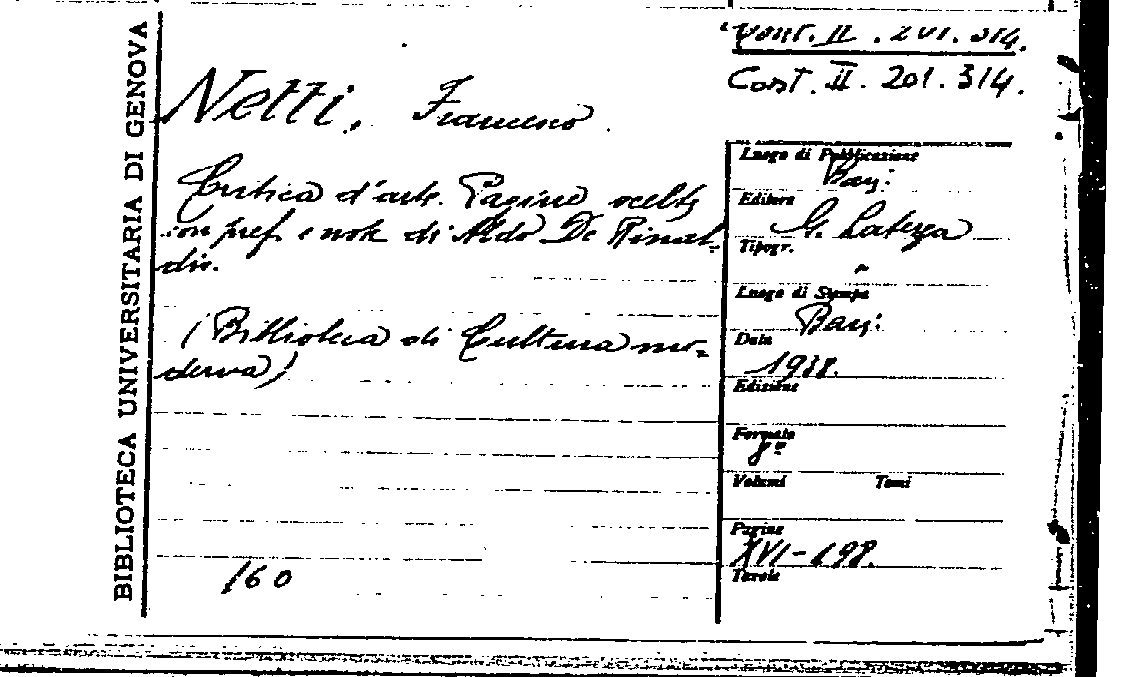 Cont. II. 201. 314.
Cost. II. 201. 314.
BIBLIOTECA UNIVERSITARIA DI GENOVA
Netti, Francesco.
Critica d'arte. Pagine scelte
con pref. e note di Aldo De Rinal-
dis.
(Biblioteca di Cultura mo-
derna)
160
Luogo di Pubblicazione
Bari
Editore
G. Laterza
Tipogr.
"
Luogo di Stampa
Bari
Data
1938.
Edizione
Formato
8º
Volumi Tomi
Pagine
XVI-198.
Tavole